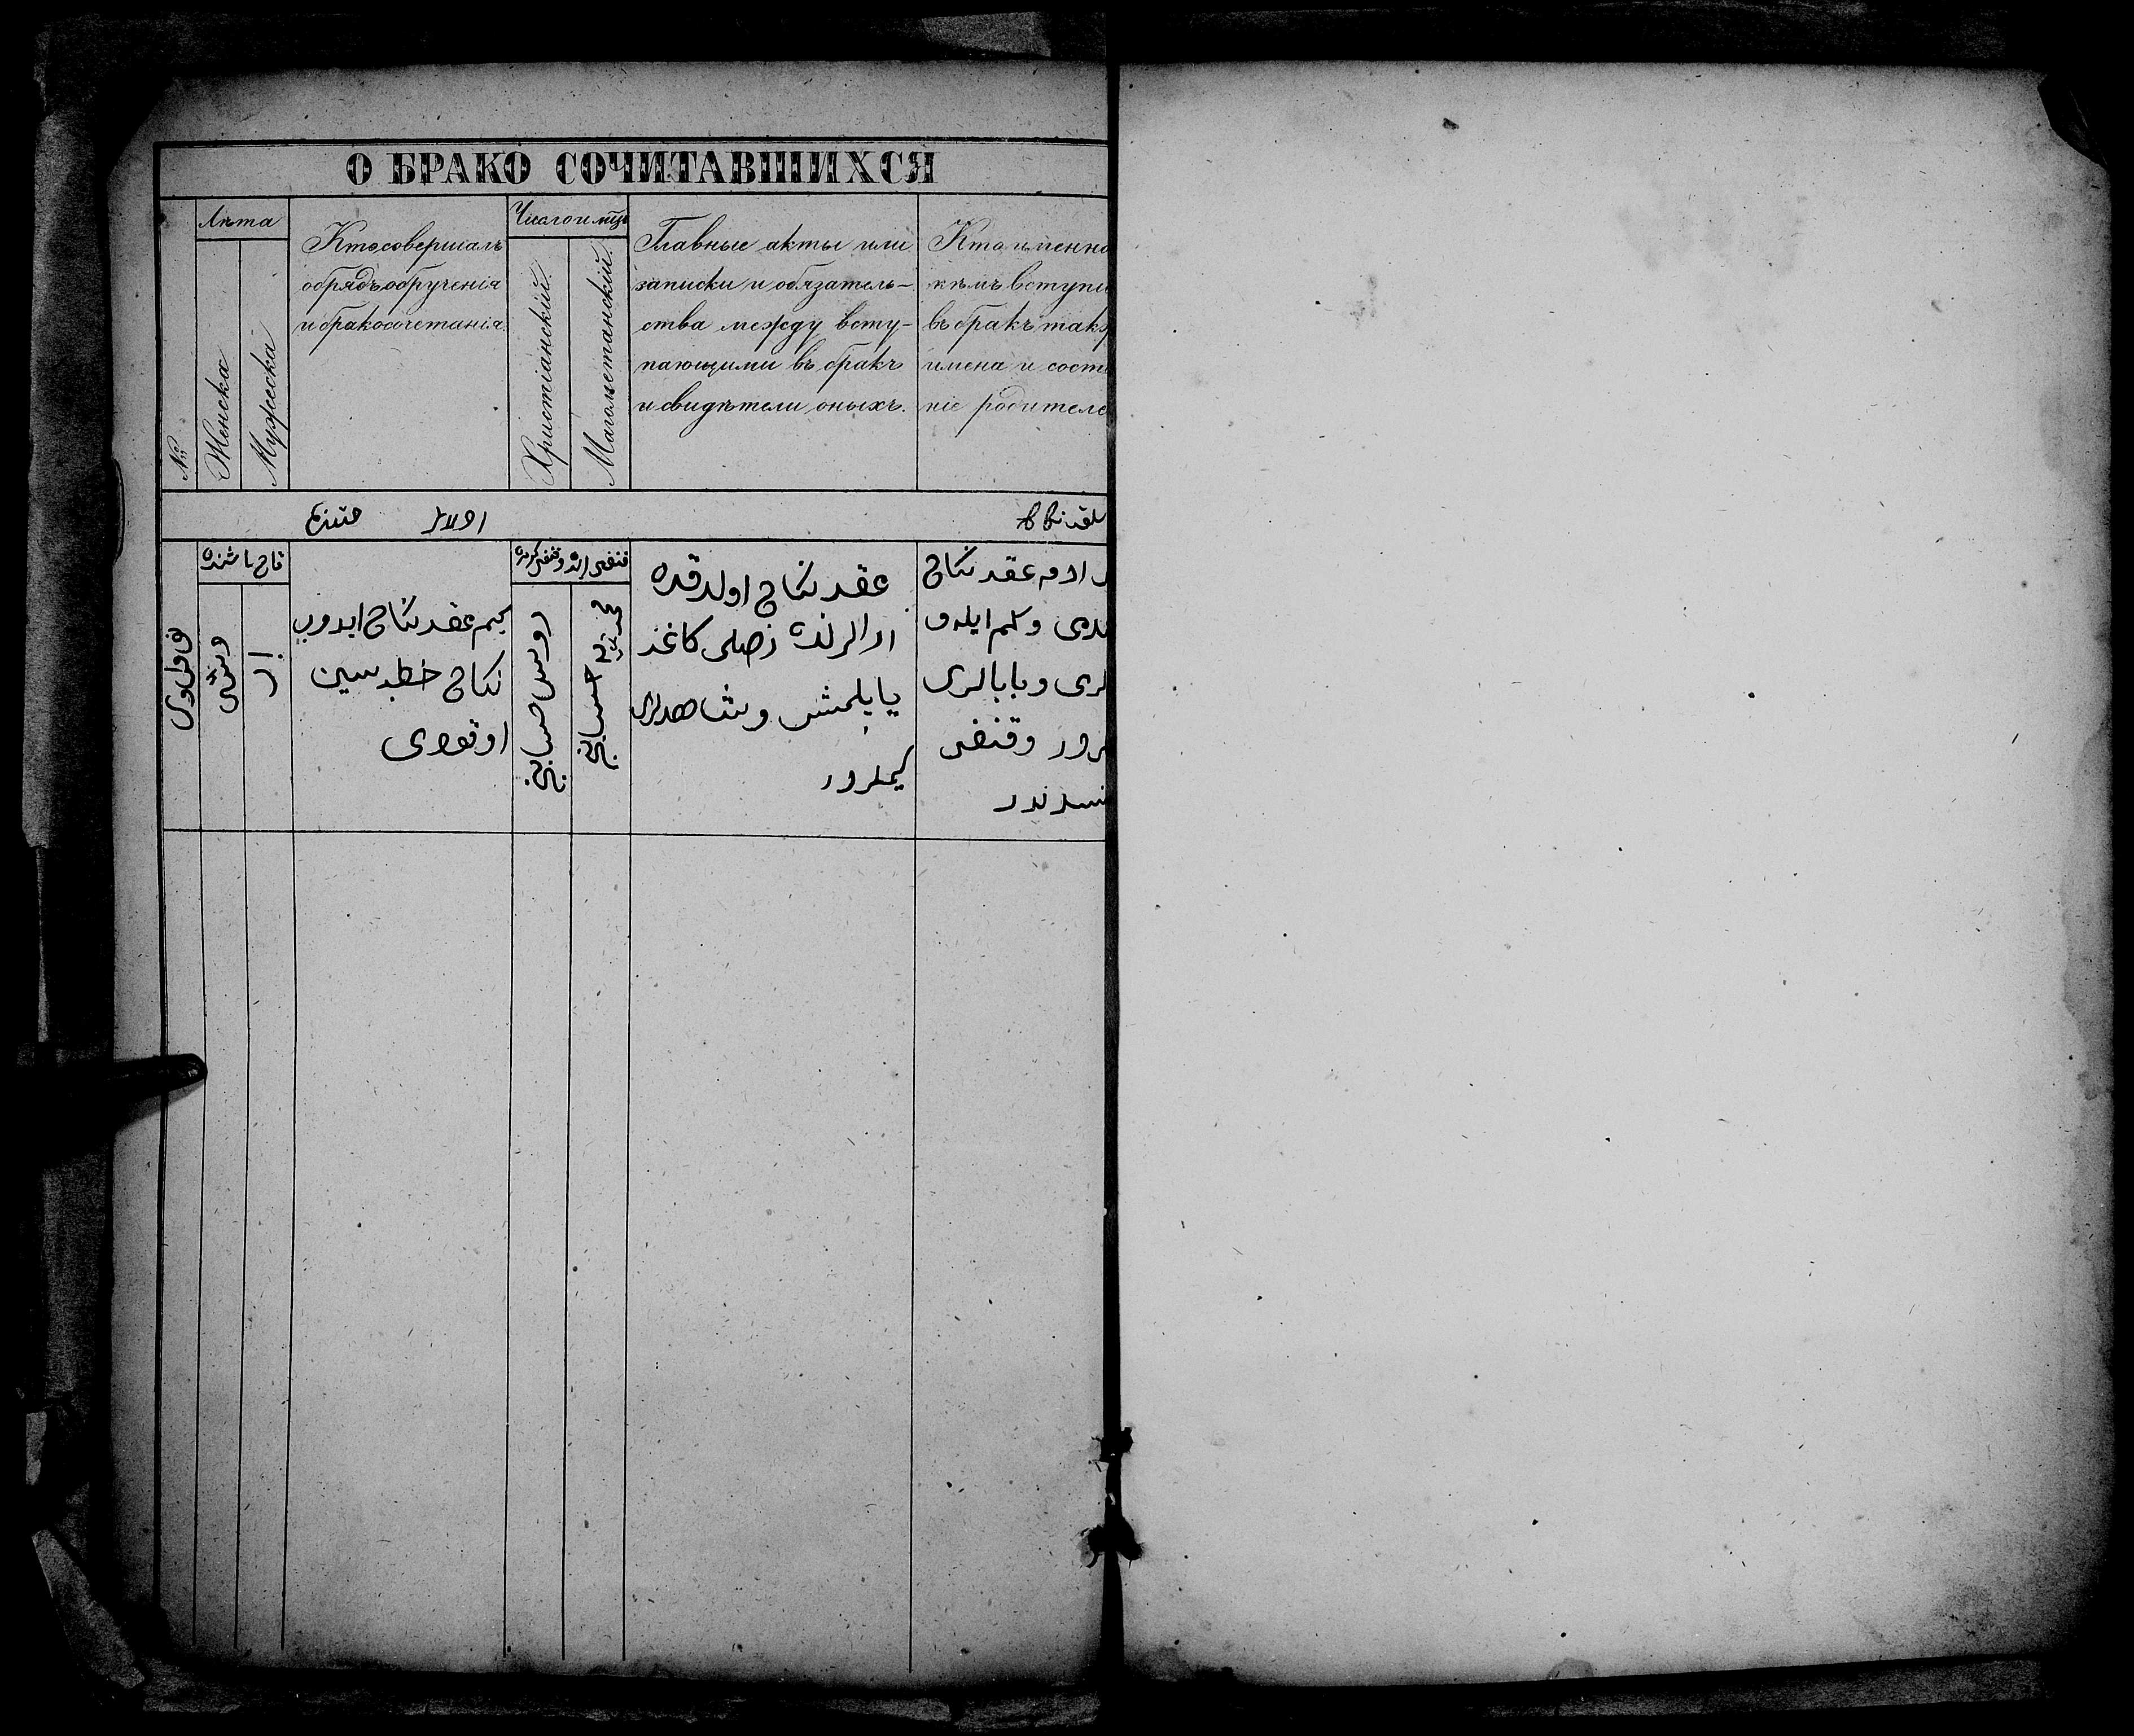 О БРАКО СОЧИТАВШИХСЯ
№
Лѣта
Женска
Мужеска
Кто совершалъ
обрядъ обрученія
и бракосочетанія.
Число и мѣц
Христіанскій
Магометанскій
Главные акты или
записки и обязатель-
ства между всту-
пающими въ бракъ
и свидѣтели оныхъ.
Кто именно
кѣмъ вступи
въ бракъ такж
имена и состо
ніе родителе
اولان
قاچ ياشنده
ار
كيم عقد نكاح ايدوب
نكاح خطبه سين
اوقودى
روس حسابانچ
حسابانچ
عقد نكاح اولدقده
ارالرنده نصلى كاغذ
ياپلمش وشاهدلرى
كيملردر
ادم عقد نكاح
وكيم ايله
لرى وبابالرى
وقنغى